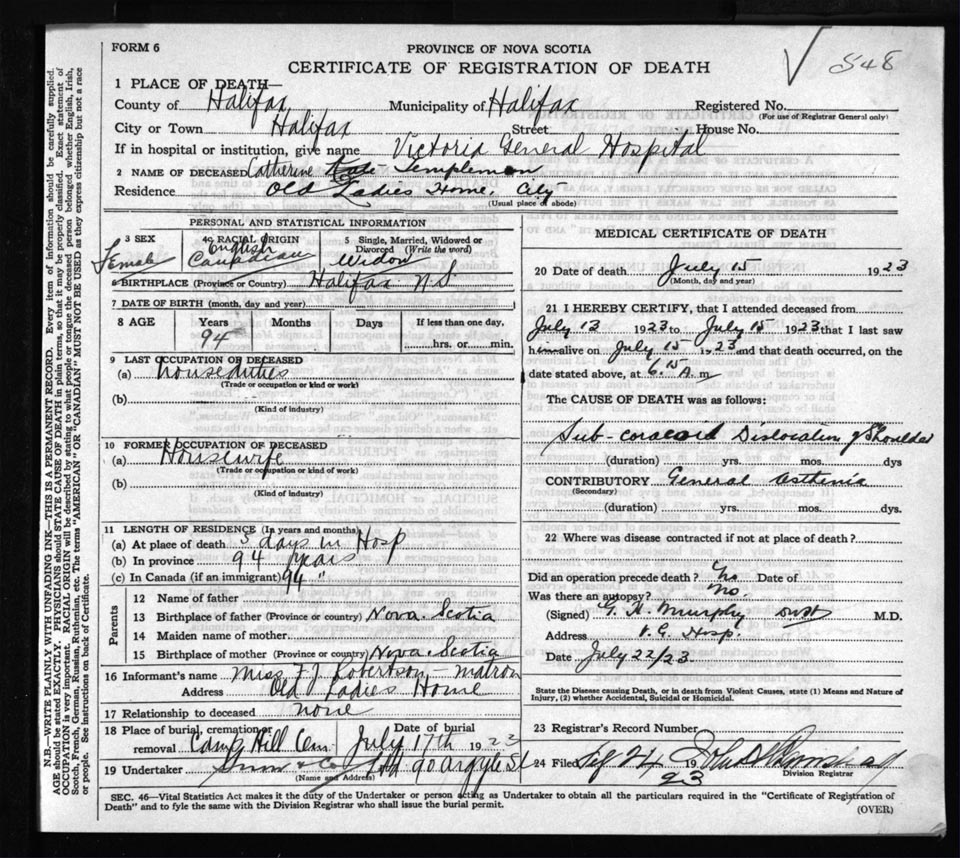 FORM 6
PROVINCE OF NOVA SCOTIA
CERTIFICATE OF REGISTRATION OF DEATH
√ 548
1 PLACE OF DEATH—
County of Halifax Municipality of Halifax Registered No.
(For use of Registrar General only)
City or Town Halifax Street House No.
If in hospital or institution, give name Victoria General Hospital
2 NAME OF DECEASED Catherine Templemon
Residence Old Ladies Home, City
(Usual place of abode)
PERSONAL AND STATISTICAL INFORMATION
3 SEX 4a RACIAL ORIGIN 5 Single, Married, Widowed or Divorced (Write the word)
Female English Canadian Widow
6 BIRTHPLACE (Province or Country) Halifax N S
7 DATE OF BIRTH (month, day and year)
8 AGE Years Months Days If less than one day,
94 hrs. or min.
9 LAST OCCUPATION OF DECEASED
(a) houseduties
(Trade or occupation or kind or work)
(b)
(Kind of industry)
10 FORMER OCCUPATION OF DECEASED
(a) Housewife
(Trade or occupation or kind of work)
(b)
(Kind of industry)
11 LENGTH OF RESIDENCE (In years and months)
(a) At place of death 3 days in Hosp
(b) In province 94 years
(c) In Canada (if an immigrant) 94 "
Parents
12 Name of father
13 Birthplace of father (Province or country) Nova Scotia
14 Maiden name of mother
15 Birthplace of mother (Province or country) Nova Scotia
16 Informant's name Miss F J Robertson – matron
Address Old Ladies Home
17 Relationship to deceased none
18 Place of burial, cremation or removal Camp Hill Cem Date of burial July 17th 1923
19 Undertaker Snow & Co Ltd 90 Argyle St
(Name and Address)
MEDICAL CERTIFICATE OF DEATH
20 Date of death July 15 1923
(Month, day and year)
21 I HEREBY CERTIFY, that I attended deceased from
July 13 1923 to July 15 1923 that I last saw
him alive on July 15 1923 and that death occurred, on the
date stated above, at 6.15 A. m
The CAUSE OF DEATH was as follows:
Sub-coracoid Dislocation of Shoulder
(duration) yrs. mos. dys
CONTRIBUTORY General Asthenia
(Secondary)
(duration) yrs. mos. dys.
22 Where was disease contracted if not at place of death?
Did an operation precede death? No Date of
Was there an autopsy? No.
(Signed) G. H. Murphy M.D.
Address V. G. Hosp.
Date July 22/23
State the Disease causing Death, or in death from Violent Causes, state (1) Means and Nature of
Injury, (2) whether Accidental, Suicidal or Homicidal.
23 Registrar's Record Number
24 Filed 24 1923 John
Division Registrar
SEC. 46—Vital Statistics Act makes it the duty of the Undertaker or person acting as Undertaker to obtain all the particulars required in the "Certificate of Registration of
Death" and to fyle the same with the Division Registrar who shall issue the burial permit.
(OVER)
N.B.—WRITE PLAINLY WITH UNFADING INK—THIS IS A PERMANENT RECORD. Every item of information should be carefully supplied.
AGE should be stated EXACTLY. PHYSICIANS should STATE CAUSE OF DEATH in plain terms, so that it may be properly classified. Exact statement of
OCCUPATION is very important. RACIAL ORIGIN will be described by stating to what people or tongue the deceased person belonged whether English, Irish,
Scotch, French, German, Russian, Ruthenian, etc. The terms "AMERICAN" OR "CANADIAN" MUST NOT BE USED as they express citizenship but not a race
or people. See instructions on back of Certificate.